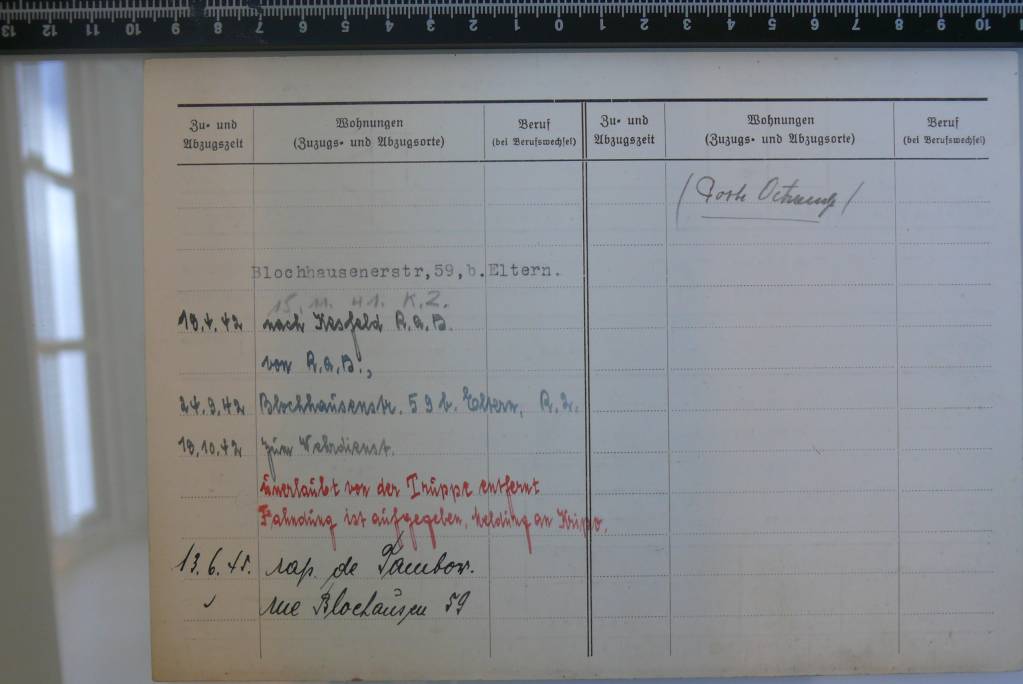 13 12 11 10 9 8 7 6 5 4 3 2 1 0 1 2 3 4 5 6 7 8 9 10
Zu- und Abzugszeit
Wohnungen (Zuzugs- und Abzugsorte)
Beruf (bei Berufswechsel)
Zu- und Abzugszeit
Wohnungen (Zuzugs- und Abzugsorte)
Beruf (bei Berufswechsel)
Blochhausenerstr,59,b.Eltern.
15. 11. 41. K.Z.
18.4.42 nach R.a.B.
von R.a.B.,
24.9.42 Blochhausenstr. 59 b. Eltern, R.2.
18.10.42 zum Wehrdienst.
unerlaubt von der Truppe entfernt
Fahndung ist aufgegeben, Meldung an Kripo.
13.6.45. rap. de Tambow.
rue Blochausen 59